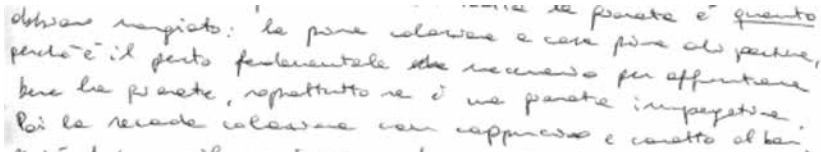 la giornata è quanto
abbiamo mangiato: la prima colazione a casa prima di partire,
perché è il pasto fondamentale che necessario per affrontare
bene la giornata, soprattutto se è una giornata impegativa.
Poi la seconda colazione con cappuccino e cornetto al bar,